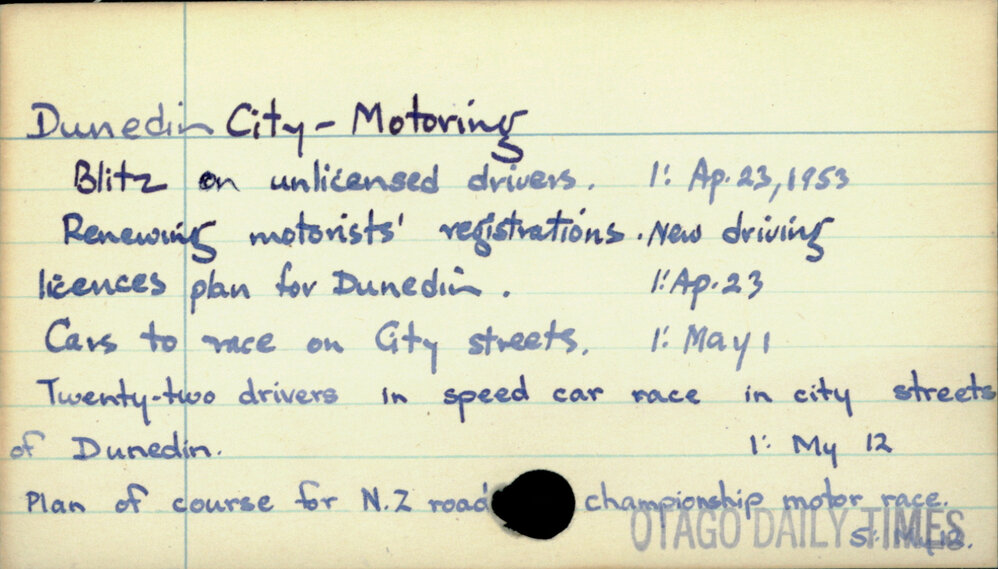 Dunedin City - Motoring
Blitz on unlicensed drivers. 1: Ap. 23, 1953
Renewing motorists' registrations. New driving
licences plan for Dunedin. 1: Ap. 23
Cars to race on City streets. 1: May 1
Twenty-two drivers in speed car race in city streets
of Dunedin. 1: My 12
Plan of course for N.Z road championship motor race.
OTAGO DAILY TIMES